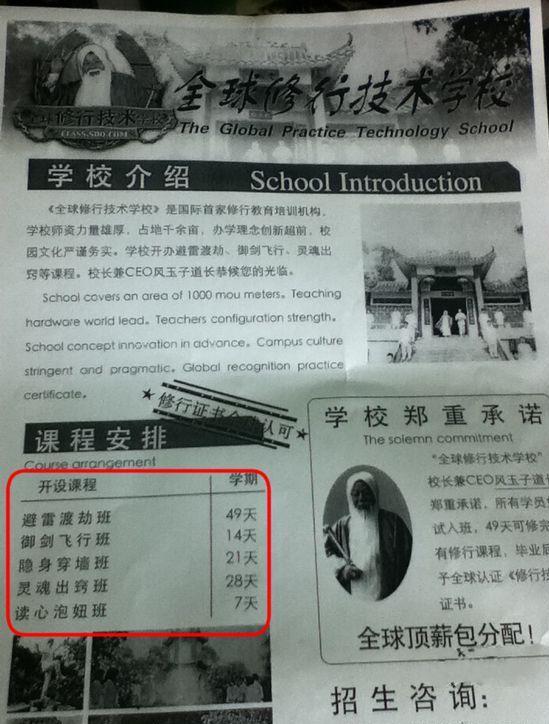 全球修行技术学校
CLASS.SDO.COM
全球修行技术学校
The Global Practice Technology School
学校介绍 School Introduction
《全球修行技术学校》是国际首家修行教育培训机构，
学校师资力量雄厚，占地千余亩，办学理念创新超前，校
园文化严谨务实。学校开办避雷渡劫、御剑飞行、灵魂出
窍等课程。校长兼CEO风玉子道长恭候您的光临。
School covers an area of 1000 mou meters。Teaching
hardware world lead。Teachers configuration strength。
School concept innovation in advance。Campus culture
stringent and pragmatic。Global recognition practice
certificate。
★修行证书全球认可★
课程安排
Course arrangement
开设课程 学期
避雷渡劫班 49天
御剑飞行班 14天
隐身穿墙班 21天
灵魂出窍班 28天
读心泡妞班 7天
学校郑重承诺
The solemn commitment
“全球修行技术学校”
校长兼CEO风玉子道长
郑重承诺，所有学员
试入班，49天可修完
有修行课程，毕业后
予全球认证《修行技
证书。
全球顶薪包分配！
招生咨询：